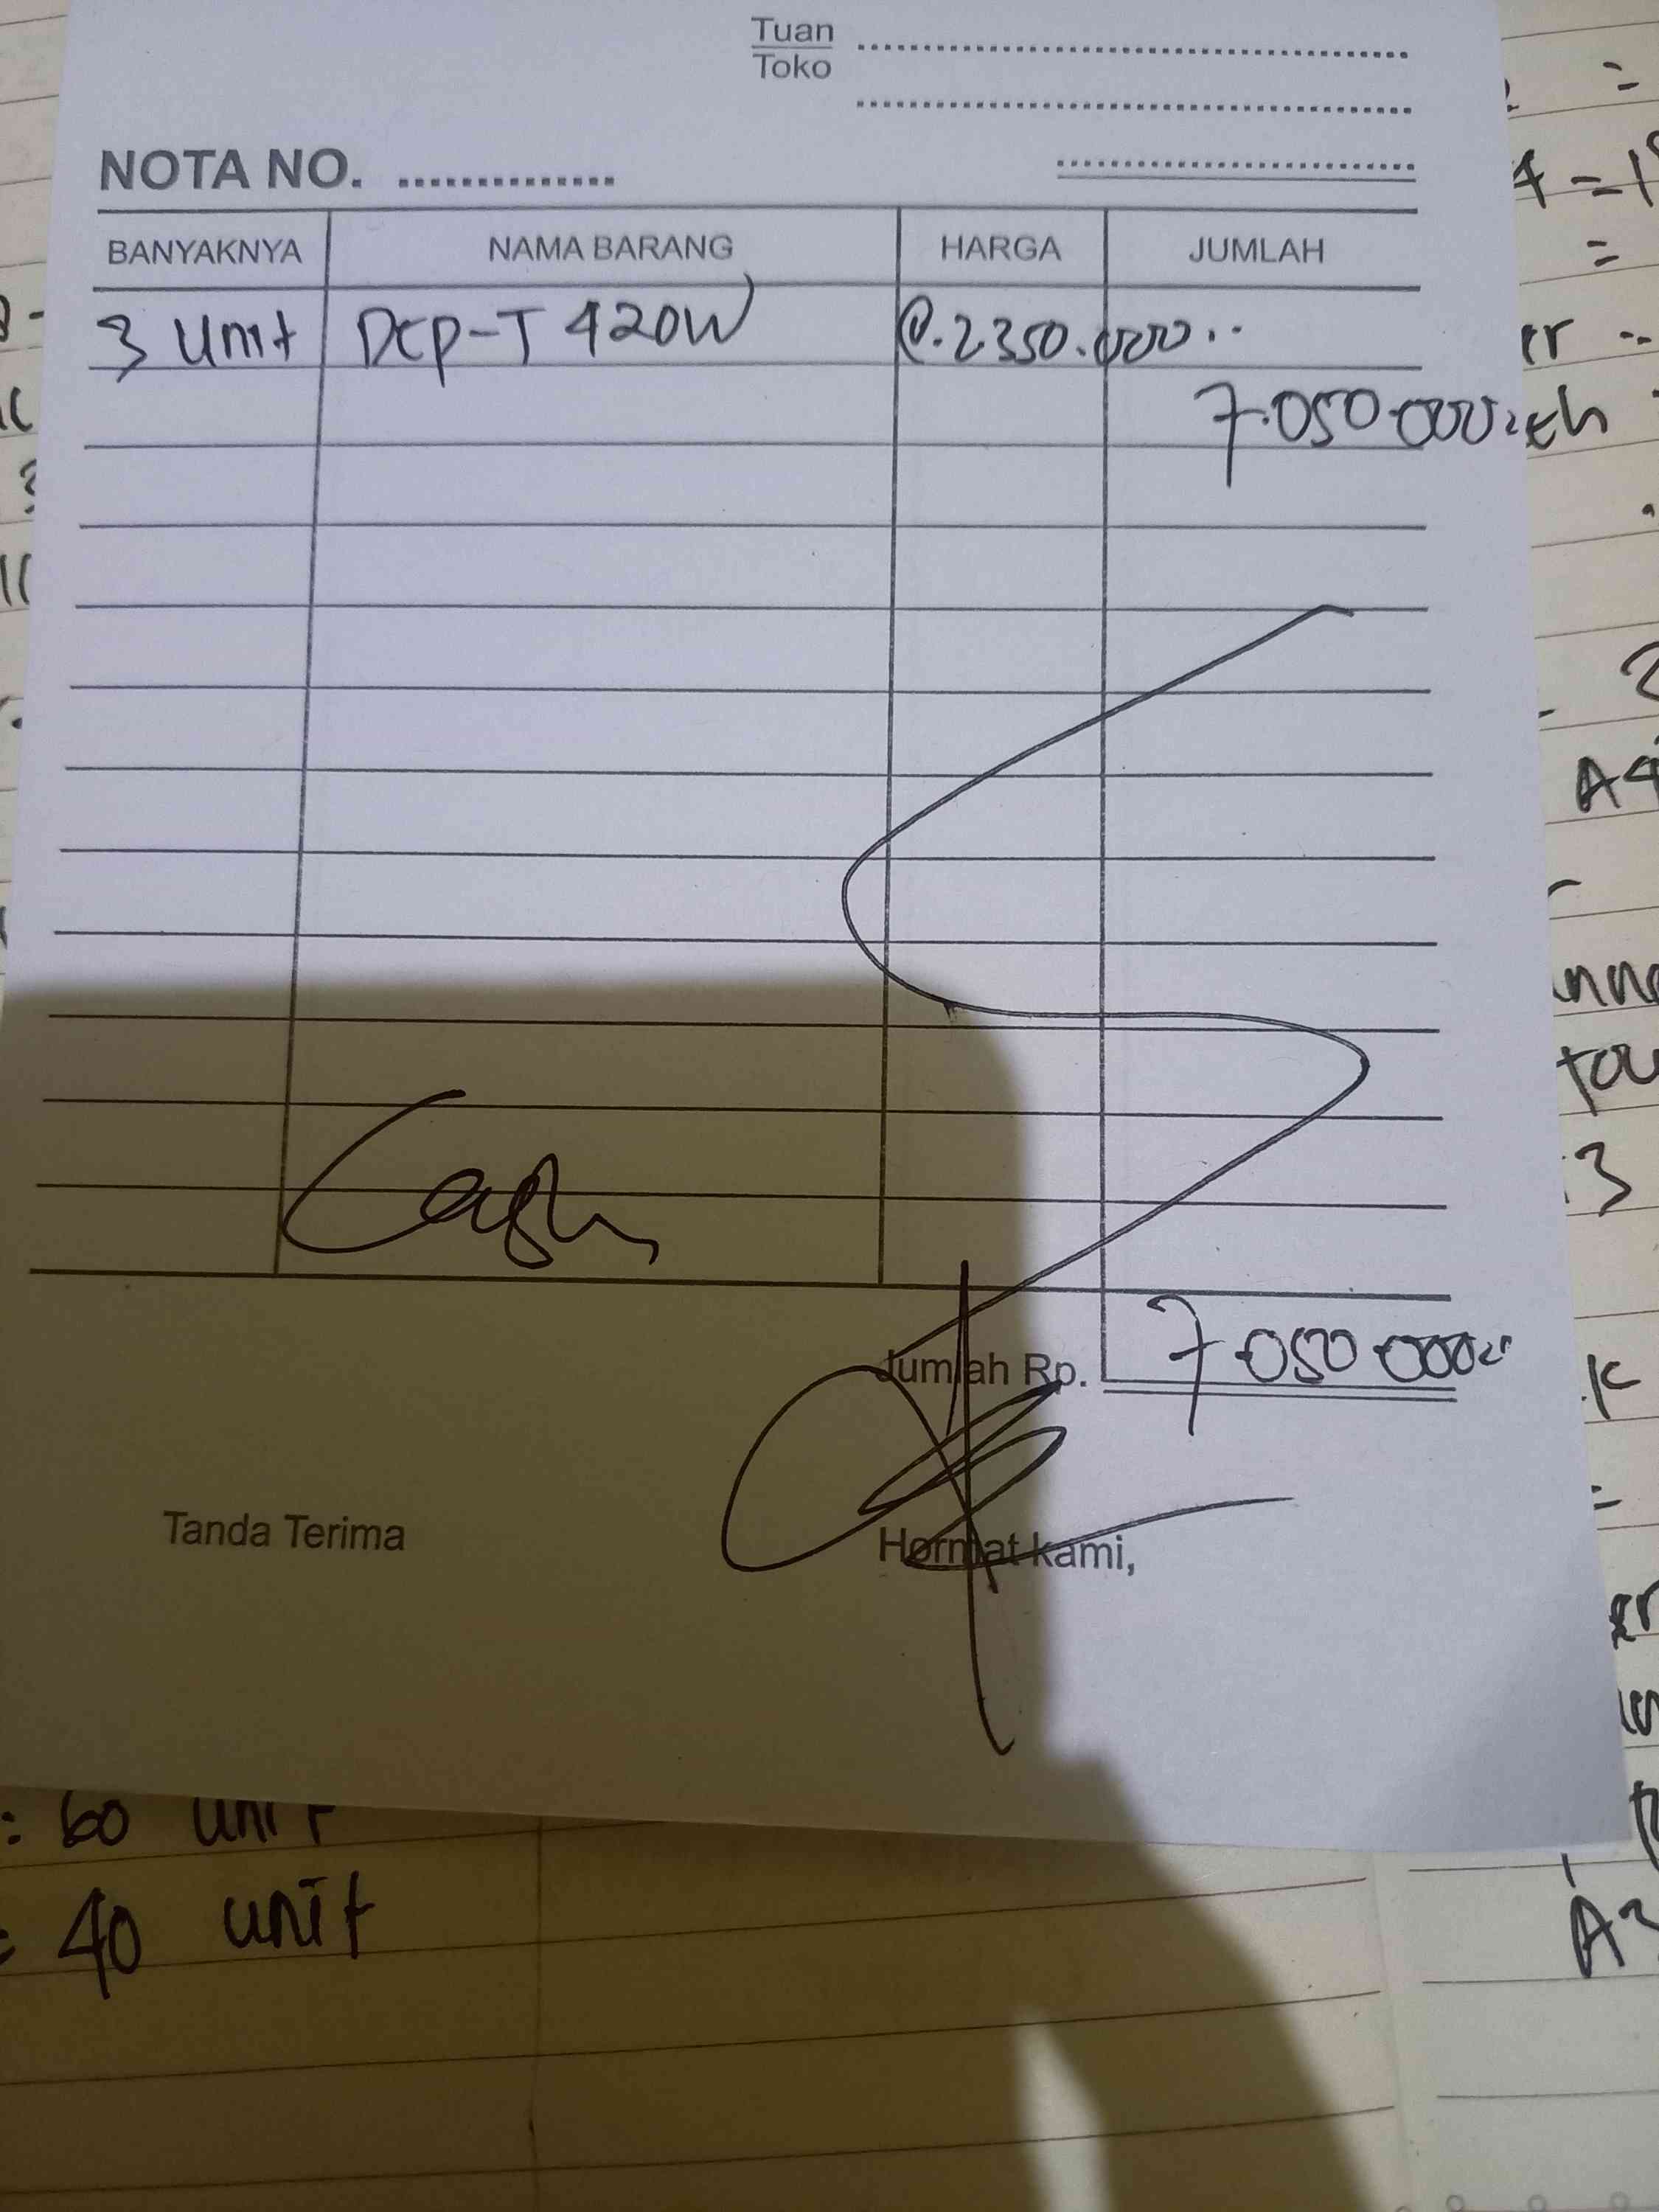 Tuan
Toko
NOTA NO.
BANYAKNYA NAMA BARANG HARGA JUMLAH
3 Unit DCP-T 420W @.2350.000..
7.050.000
Cash
Jumlah Rp. 7.050.000
Tanda Terima Hormat kami,
: 60 unit
= 40 unit
A4
A3